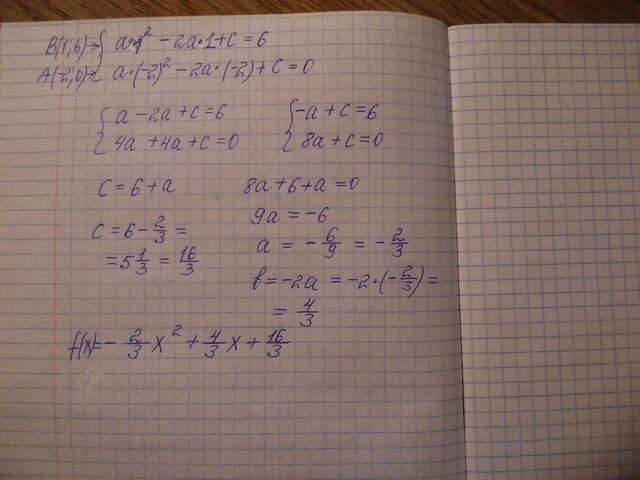 B(1;6)→ { a·1² − 2a·1 + c = 6
A(−2;0)→ { a·(−2)² − 2a·(−2) + c = 0
{ a − 2a + c = 6
4a + 4a + c = 0
{ −a + c = 6
8a + c = 0
c = 6 + a
8a + 6 + a = 0
9a = −6
c = 6 − 2/3 =
= 5 1/3 = 16/3
a = − 6/9 = − 2/3
b = −2a = −2·(−2/3) =
= 4/3
f(x) = − 2/3 x² + 4/3 x + 16/3